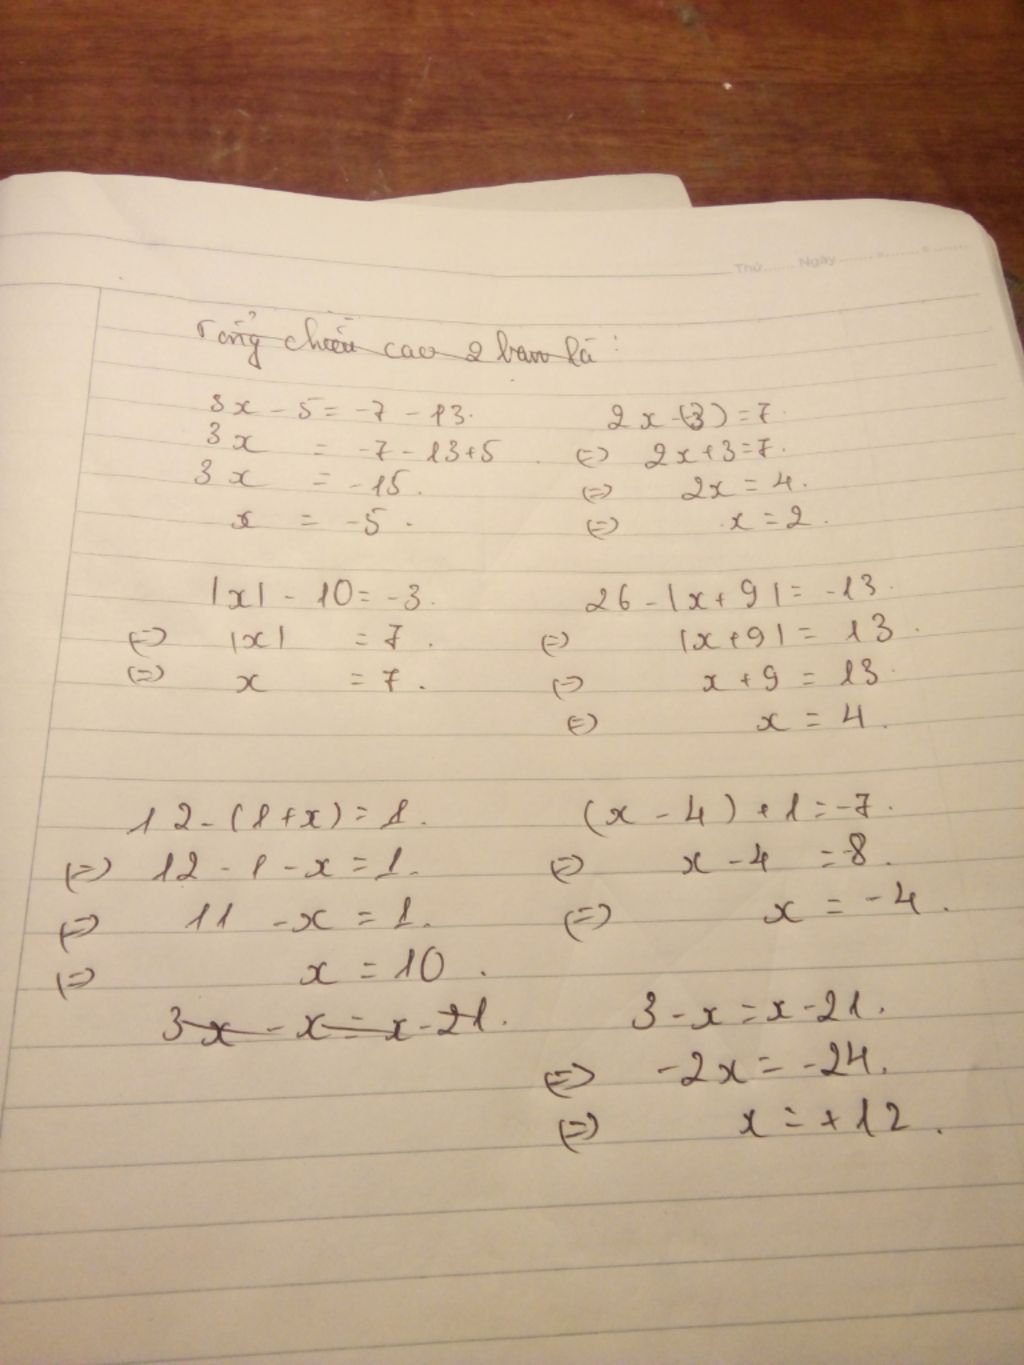 Thứ....... Ngày
Tổng chiều cao 2 bạn là :
3x - 5 = -7 - 13.
3x = -7 - 13+5
3x = -15.
x = -5.
2x-(-3) = 7.
(=) 2x+3=7.
(=) 2x = 4.
(=) x = 2.
|x| - 10 = -3.
(=) |x| = 7.
(=) x = 7.
26 - |x + 9| = -13.
(=) |x + 9| = 13.
(=) x + 9 = 13.
(=) x = 4.
12 - (1 + x) = 1.
(=) 12 - 1 - x = 1.
(=) 11 - x = 1.
(=) x = 10.
(x - 4) + 1 = -7.
(=) x - 4 = -8.
(=) x = -4.
3x - x = x - 21.
3 - x = x - 21.
(=) -2x = -24.
(=) x = +12.